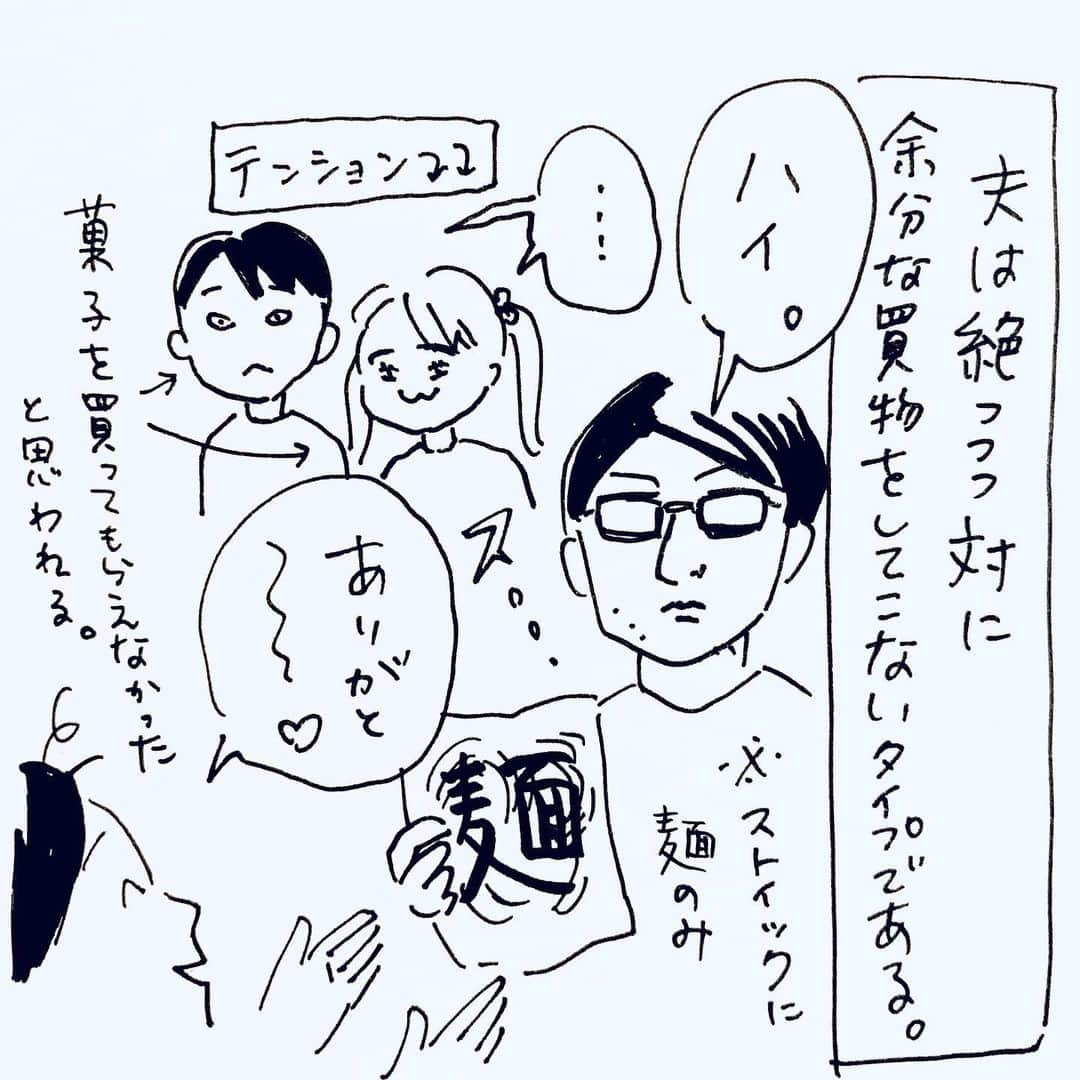 夫は絶っっっ対に
余分な買物をしてこないタイプである。
ハイ。
…
テンション↓↓
菓子を買ってもらえなかった
と思われる。
ス…
ありがと
〜〜♡
麺
※ストイックに
麺のみ